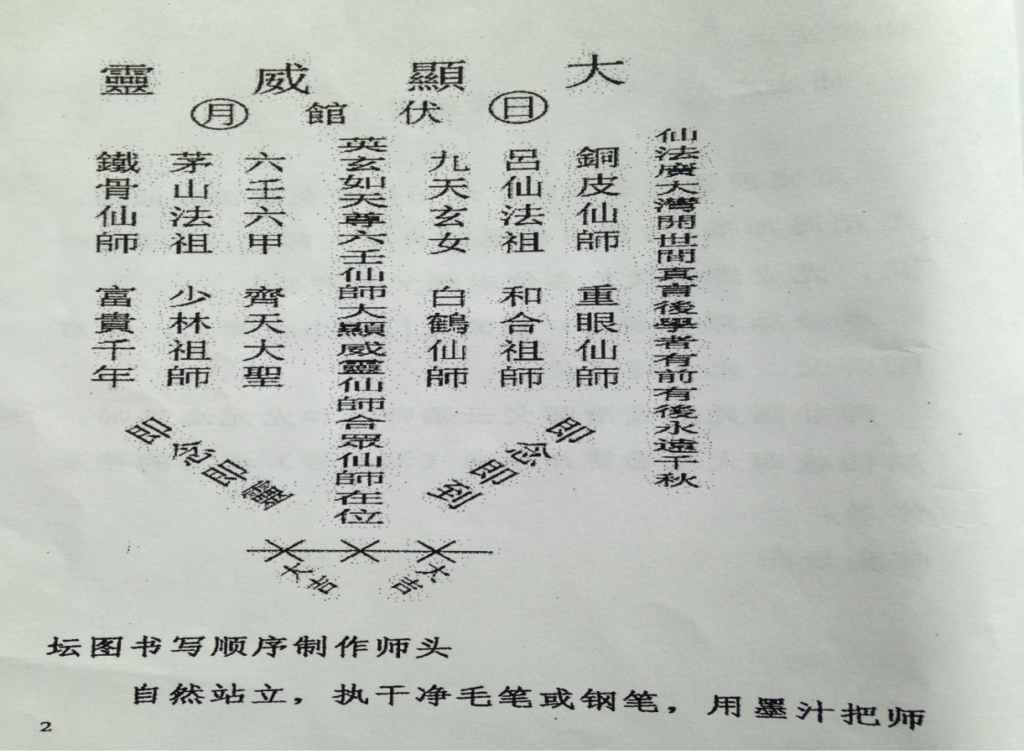 大顯威靈
日伏館月
仙法廣大灣開世間真言後學者有前有後永遠千秋
銅皮仙師 重眼仙師
呂仙法祖 和合祖師
九天玄女 白鶴仙師
英玄如天尊六壬仙師大顯威靈仙師合眾仙師在位
六壬六甲 齊天大聖
茅山法祖 少林祖師
鐵骨仙師 富貴千年
即念即到
即念即靈
大吉
大吉
坛图书写顺序制作师头
自然站立，执干净毛笔或钢笔，用墨汁把师
2